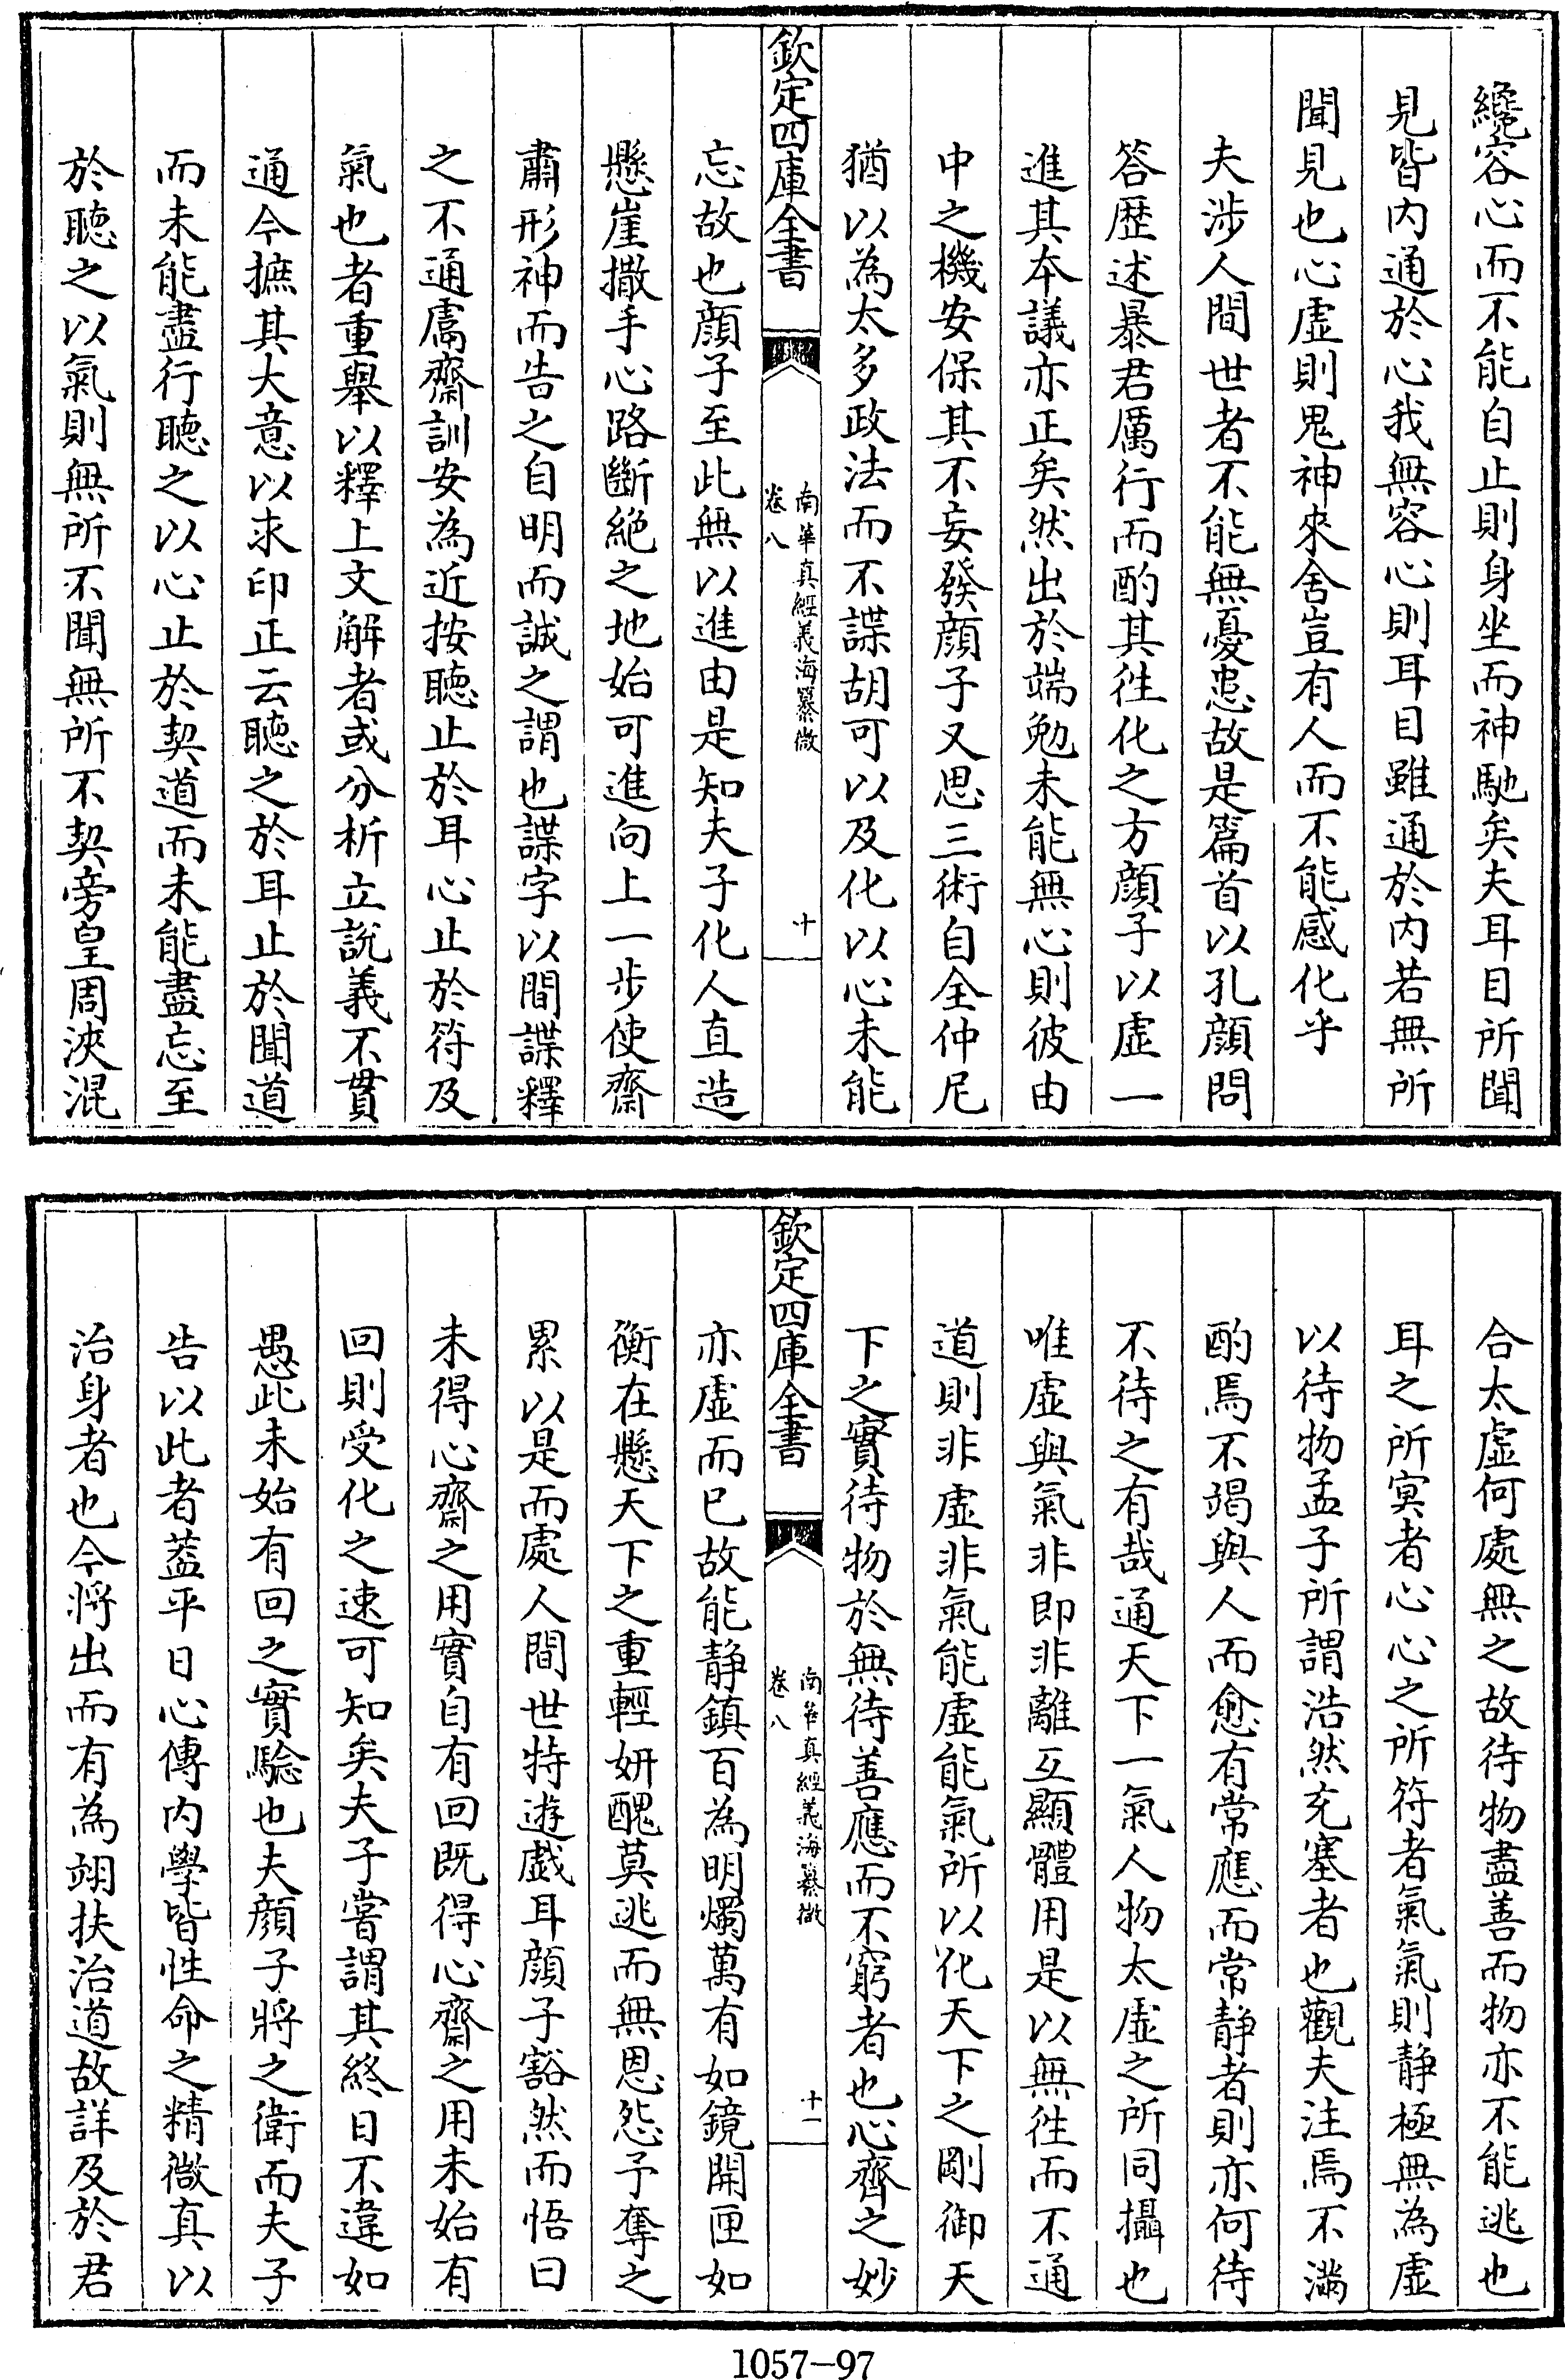 纔容心而不能自止則身坐而神馳矣夫耳目所聞
見皆内通於心我無容心則耳目雖通於内若無所
聞見也心虛則鬼神來舍豈有人而不能感化乎
夫涉人間世者不能無憂患故是篇首以孔顔問
答歴述暴君厲行而酌其徃化之方顔子以虛一
進其本議亦正矣然出於端勉未能無心則彼由
中之機安保其不妄發顔子又思三術自全仲尼
猶以為太多政法而不諜胡可以及化以心未能
欽定四庫全書
南華真經義海纂微
卷八
十
忘故也顔子至此無以進由是知夫子化人直造
懸崖撒手心路斷絶之地始可進向上一步使齋
肅形神而告之自明而誠之謂也諜字以間諜釋
之不通鬳齋訓安為近按聽止於耳心止於符及
氣也者重舉以釋上文解者或分析立說義不貫
通今摭其大意以求印正云聽之於耳止於聞道
而未能盡行聽之以心止於契道而未能盡忘至
於聽之以氣則無所不聞無所不契旁皇周浹混
合太虛何處無之故待物盡善而物亦不能逃也
耳之所㝠者心心之所符者氣氣則静極無為虛
以待物孟子所謂浩然充塞者也觀夫注焉不滿
酌焉不竭與人而愈有常應而常静者則亦何待
不待之有哉通天下一氣人物太虛之所同攝也
唯虛與氣非即非離互顯體用是以無徃而不通
道則非虛非氣能虛能氣所以化天下之剛御天
下之實待物於無待善應而不窮者也心齊之妙
欽定四庫全書
南華真經義海纂微
卷八
十一
亦虛而已故能静鎮百為明燭萬有如鏡開匣如
衡在懸天下之重輕妍醜莫逃而無恩怨予奪之
累以是而處人間世特遊戯耳顔子豁然而悟曰
未得心齋之用實自有回既得心齋之用未始有
回則受化之速可知矣夫子嘗謂其終日不違如
愚此未始有回之實驗也夫顔子將之衛而夫子
告以此者葢平日心傳内學皆性命之精微真以
治身者也今將出而有為翊扶治道故詳及於君
1057-97